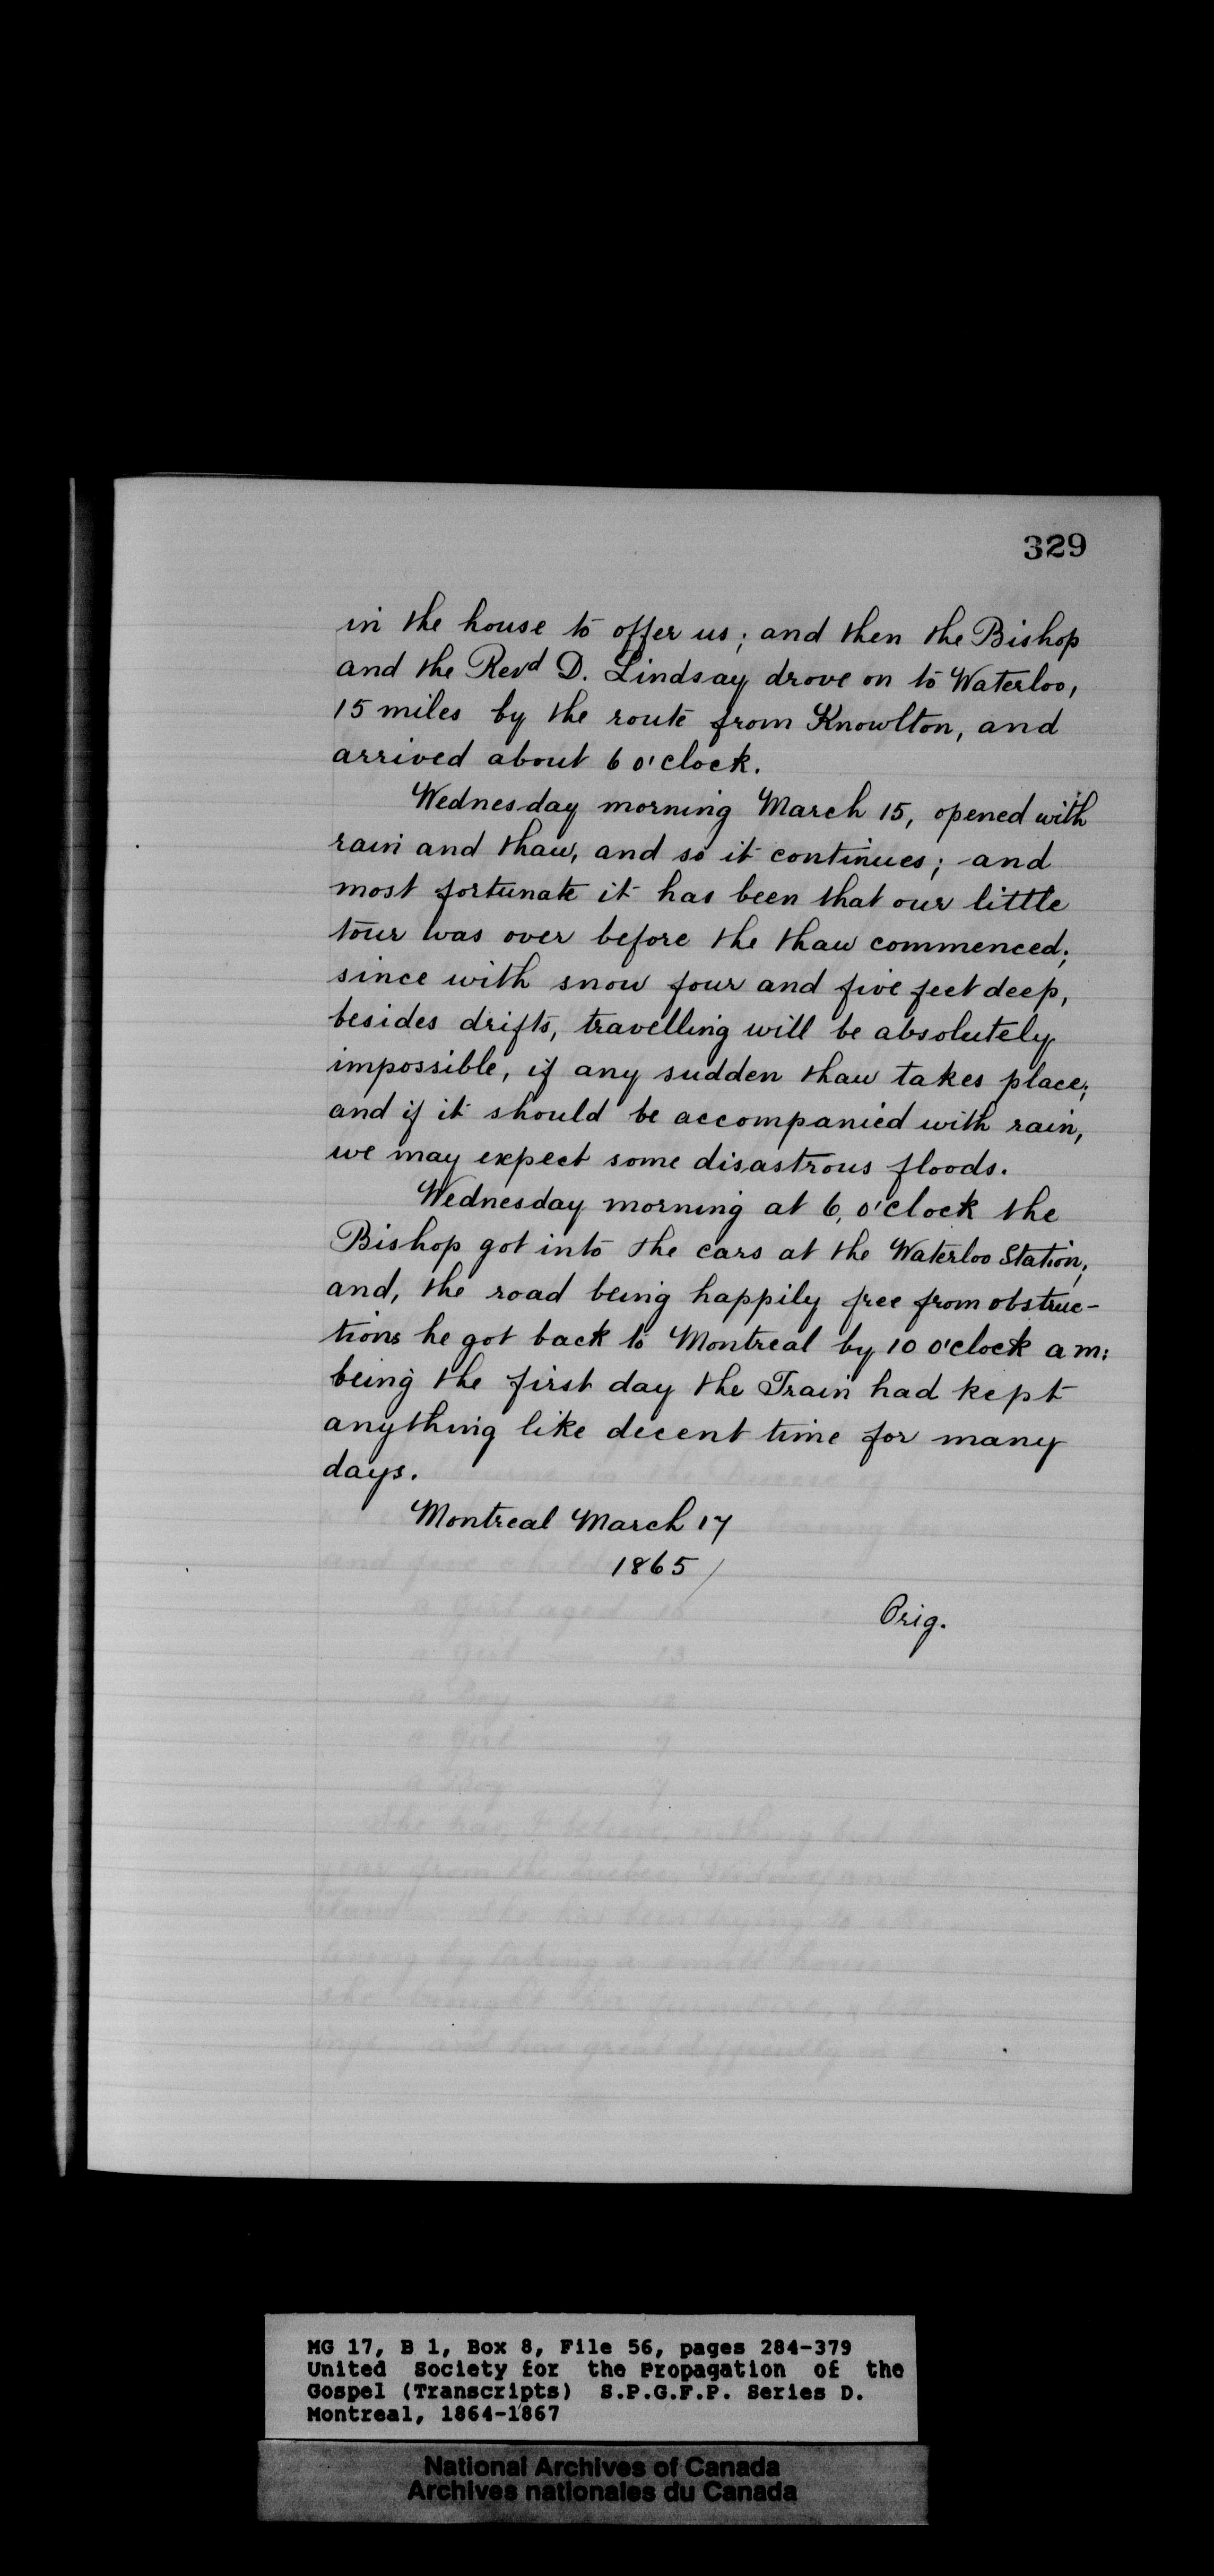 329
in the house to offer us; and then the Bishop
and the Revd D. Lindsay drove on to Waterloo,
15 miles by the route from Knowlton, and
arrived about 6 o'clock.
Wednesday morning March 15, opened with
rain and thaw, and so it continues; and
most fortunate it has been that our little
tour was over before the thaw commenced;
since with snow four and five feet deep,
besides drifts, travelling will be absolutely
impossible, if any sudden thaw takes place;
and if it should be accompanied with rain,
we may expect some disastrous floods.
Wednesday morning at 6, o'clock the
Bishop got into the cars at the Waterloo Station;
and, the road being happily free from obstruc-
tions he got back to Montreal by 10 o'clock a m:
being the first day the Train had kept
anything like decent time for many
days.
Montreal March 17
1865/
Orig.
a Girl aged
a Girl 13
a Boy
a Girl 9
a Boy 7
MG 17, B 1, Box 8, File 56, pages 284-379
United Society for the Propagation of the
Gospel (Transcripts) S.P.G.F.P. Series D.
Montreal, 1864-1867
National Archives of Canada
Archives nationales du Canada